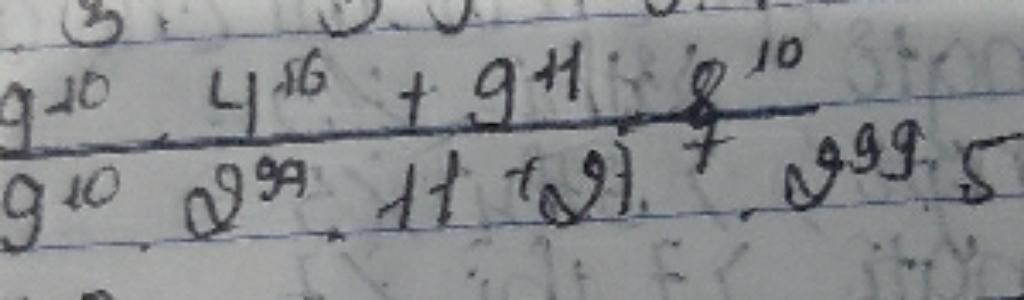 9^10 . 4^16 + 9^11 . 8^10
9^10 . 2^99 . 11 + 27^7 . 2^99 . 5